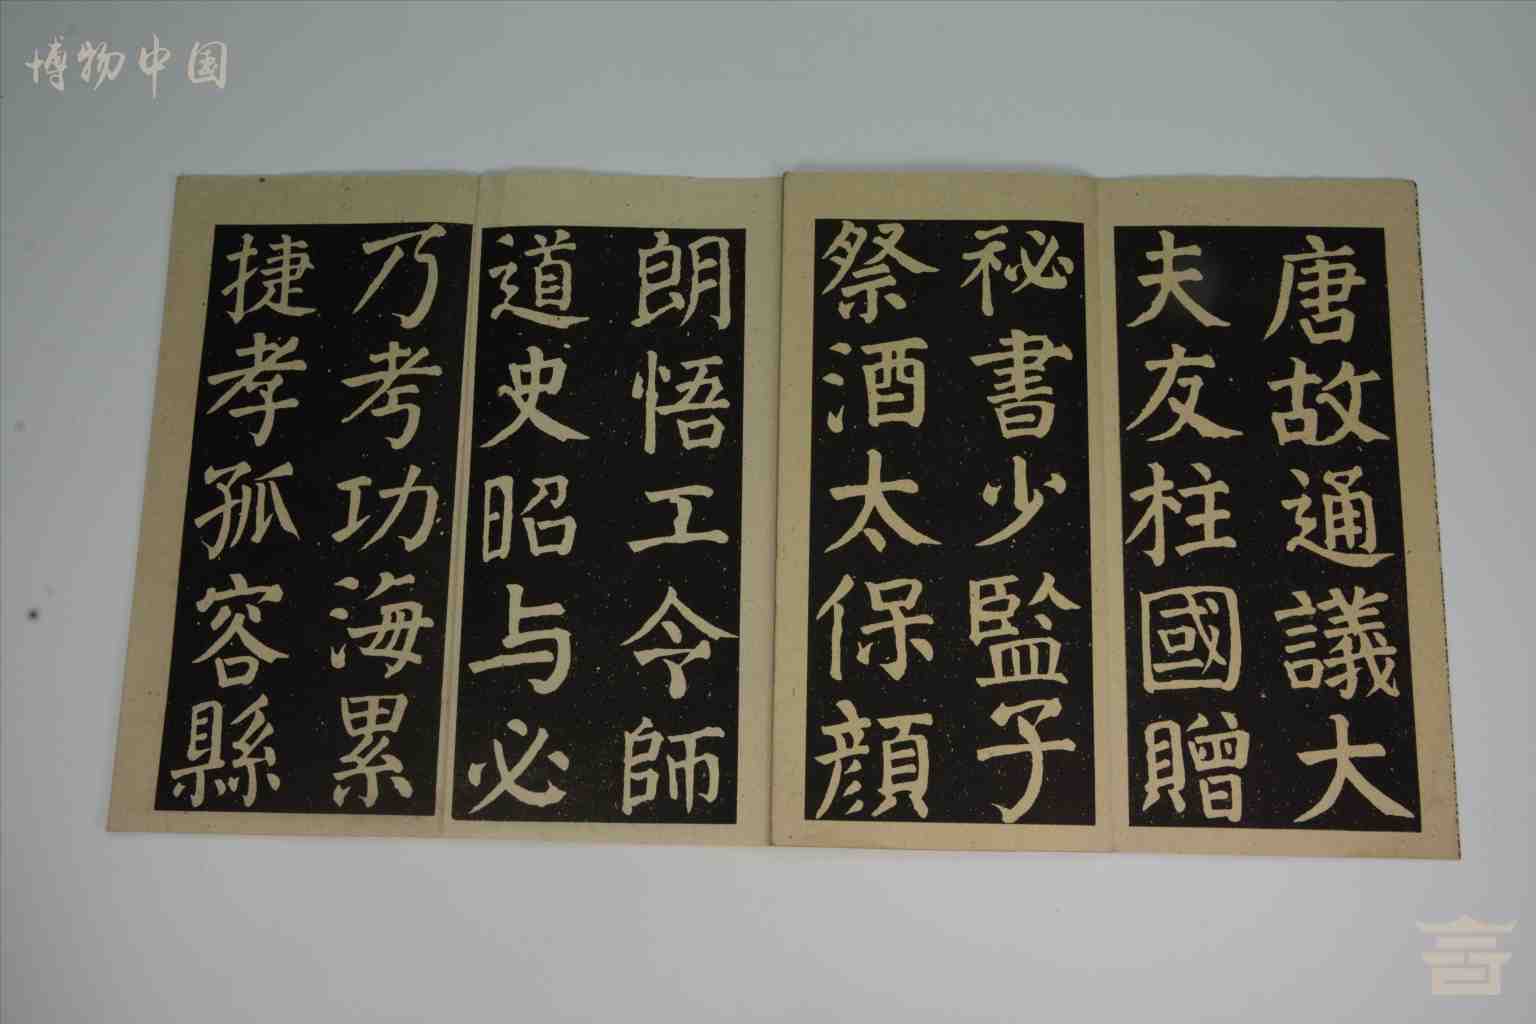 博物中国
唐故通議大
夫友柱國贈
祕書少監子
祭酒太保顏
朗悟工令師
道史昭与必
乃考功海累
捷孝孤容縣